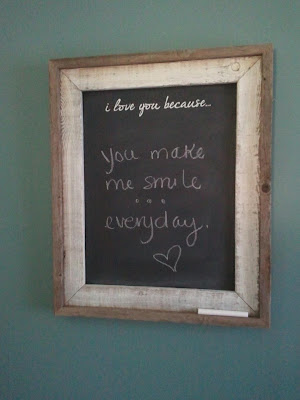 i love you because...
you make
me smile
...
everyday.